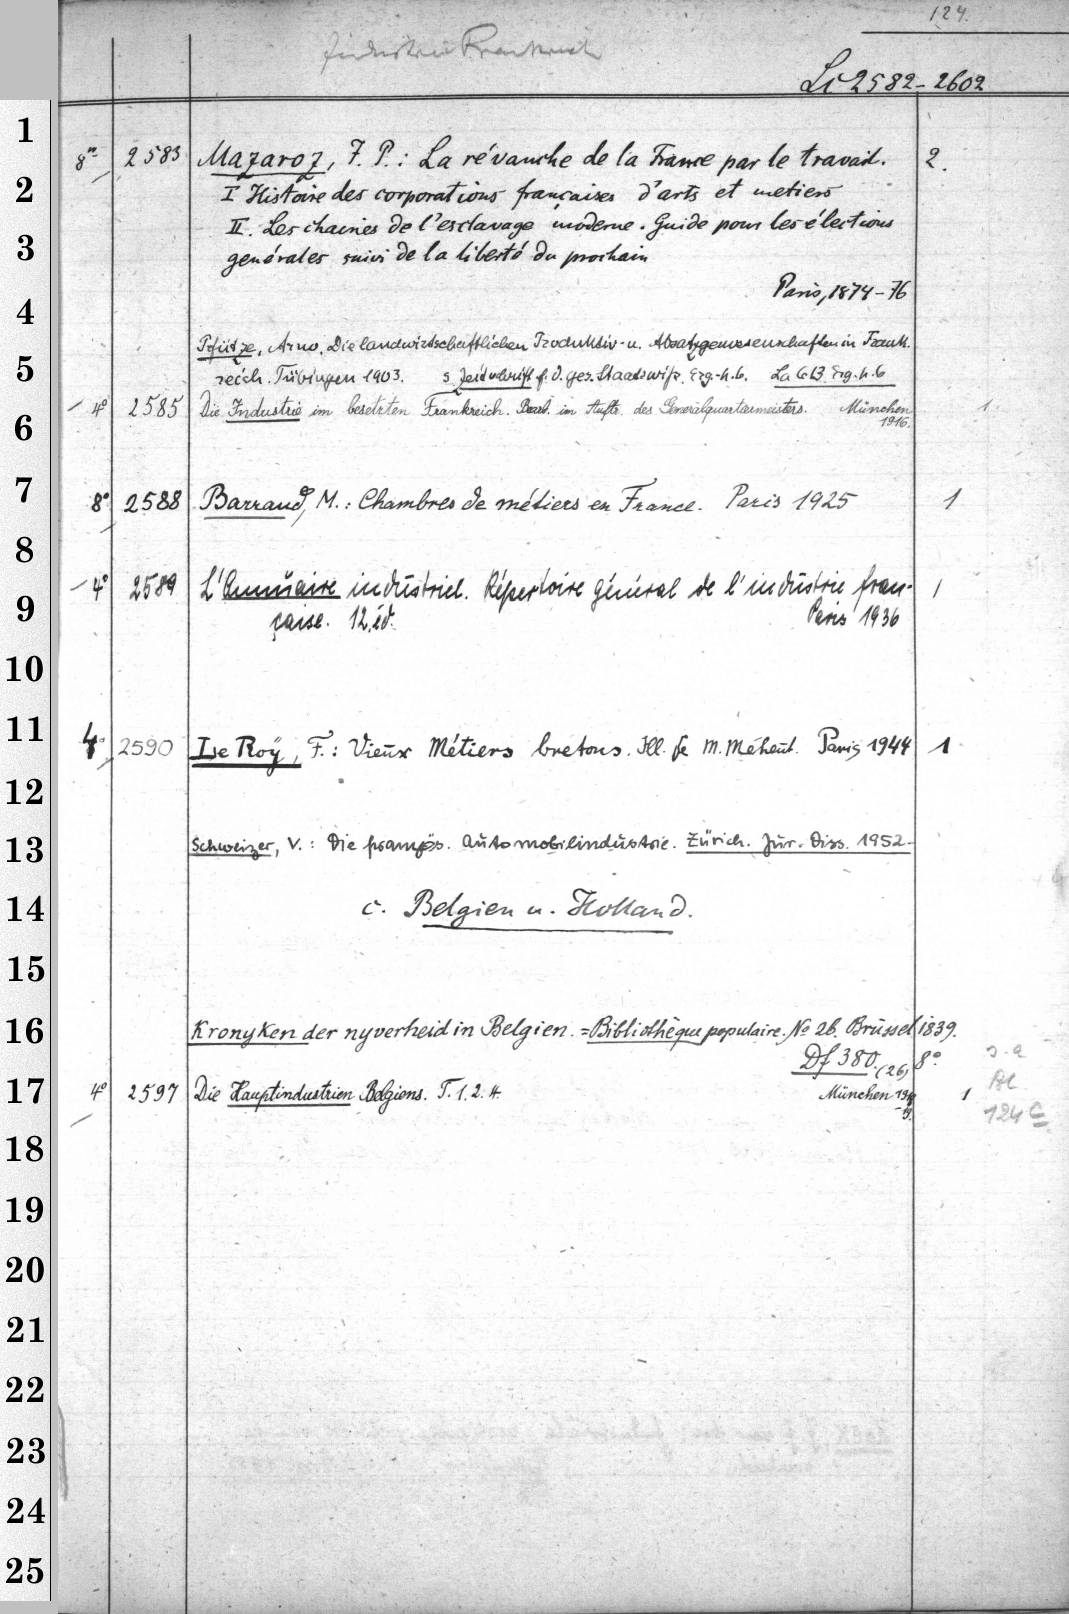 124.
Industrie Frankreich
Li 2582-2602
1
8° 2583 Mazaroz, J. P.: La révanche de la France par le travail. 2.
2 I Histoire des corporations françaises d'arts et metiers
II. Les chaines de l'esclavage moderne. Guide pour les élections
3 générales suivi de la liberté du prochain
4 Paris, 1874-76
Pfütze, Arno, Die landwirtschaftlichen Produktiv- u. Absatzgenossenschaften in Frank-
5 reich. Tübingen 1903. s. Zeitschrift f. d. ges. Staatswiss. Erg.-h. 6. La 613 Erg.-h. 6
4° 2585 Die Industrie im besetzten Frankreich. Bearb. im Auftr. des Generalquartiermeisters. München 1
6 1916.
7 8° 2588 Barraud, M.: Chambres de métiers en France. Paris 1925 1
8
4° 2589 L'Annuaire industriel. Répertoire général de l'industrie fran- 1
9 çaise. 12. éd. Paris 1936
10
11 4° 2590 Le Roÿ, F.: Vieux Métiers bretons. Ill. de M. Méheut. Paris 1944 1
12
13 Schweizer, V.: Die französ. Automobilindustrie. Zürich. Jur. Diss. 1952
14 c. Belgien u. Holland.
15
16 Kronyken der nyverheid in Belgien. = Bibliothèque populaire. No 26. Brüssel 1839.
Df 380 (26) 8°
s. a
17 4° 2597 Die Hauptindustrien Belgiens. T. 1. 2. 4. München 1
124 C
18
19
20
21
22
23
24
25